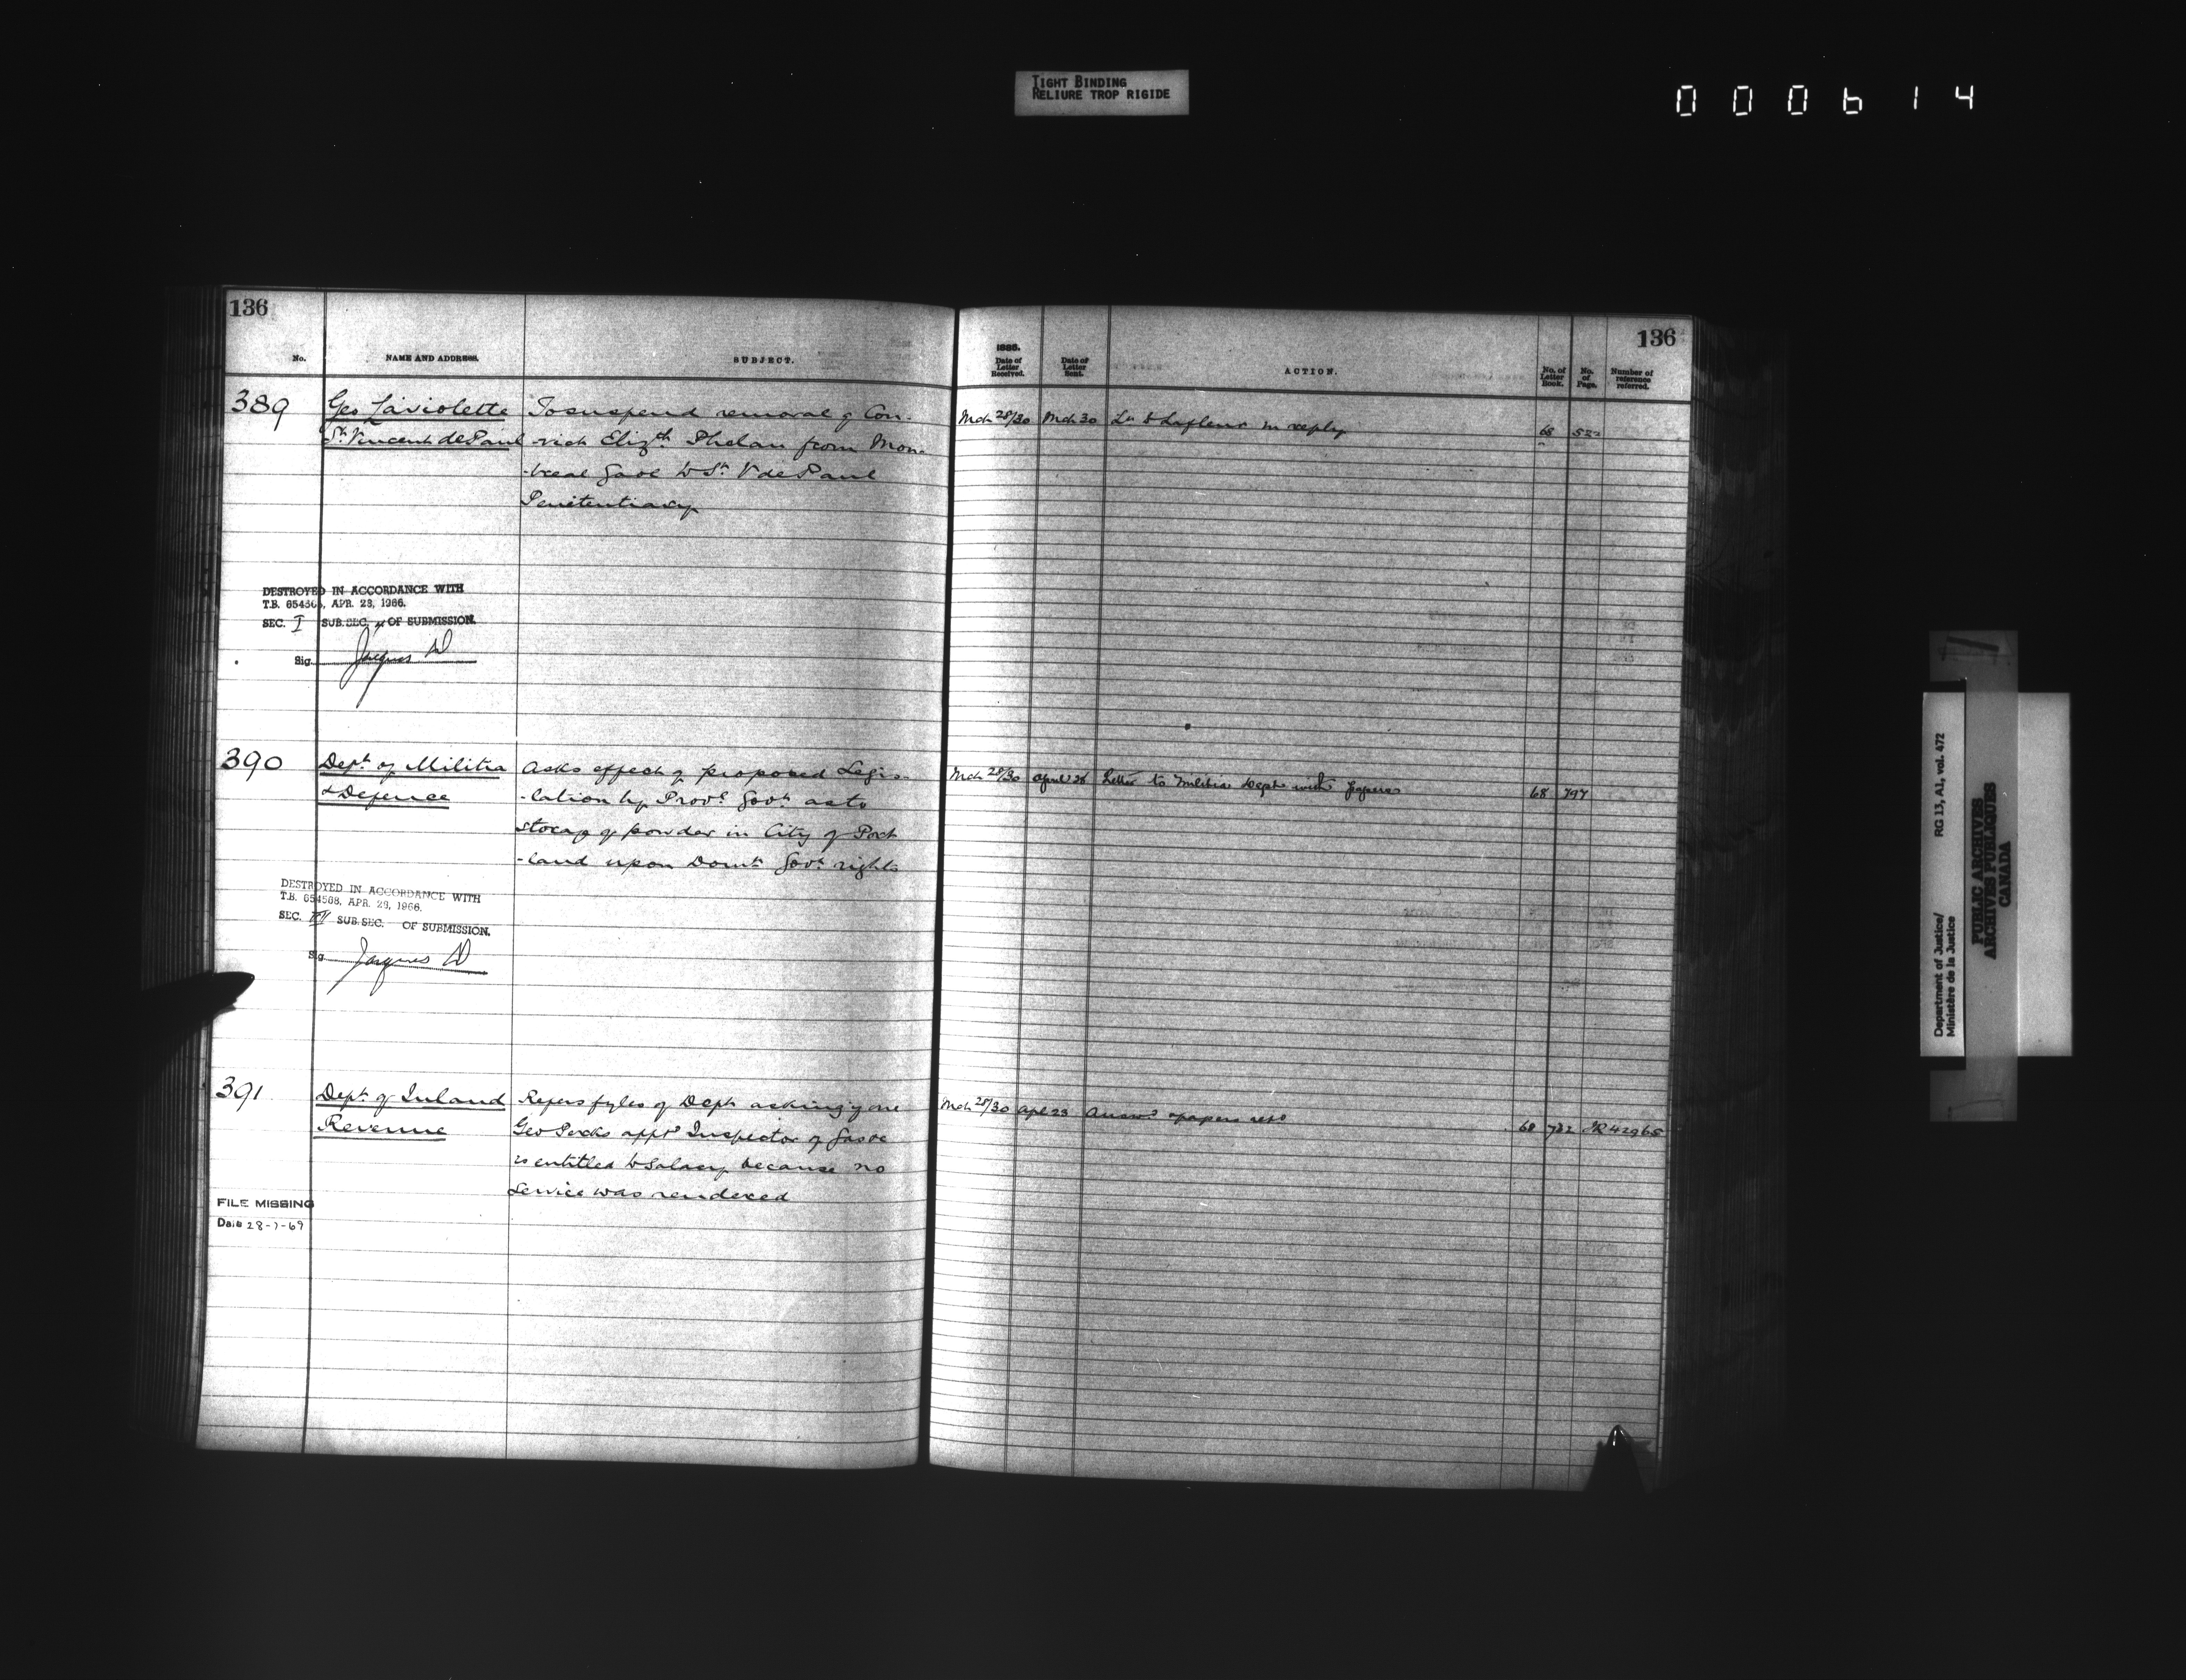 TIGHT BINDING
RELIURE TROP RIGIDE
000614
136
No. NAME AND ADDRESS. SUBJECT.
389 Geo Laviolette To suspend removal of Con-
St. Vincent de Paul -vict Elizth Phelan from Mon-
-treal Gaol to St. V de Paul
Penitentiary
DESTROYED IN ACCORDANCE WITH
T.B. 654568, APR. 28, 1966.
SEC. I SUB.SEC. OF SUBMISSION.
Sig. Jacques
390 Dept. of Militia Asks effect of proposed Legis-
& Defence -lation by Provl Govt. as to
storag of powder in City of Port
-land upon Domn Govt. rights
DESTROYED IN ACCORDANCE WITH
T.B. 654568, APR. 28, 1966.
SEC. III SUB.SEC. OF SUBMISSION.
Sig. Jacques
391 Dept. of Inland Refers fyles of Dept asking if one
Revenue Geo appt Inspector of Gas &c
is entitled to salary because no
service was rendered
FILE MISSING
Date 28-7-69
136
1885.
Date of Letter Received. Date of Letter Sent. ACTION. No. of Letter Book. No. of Page. Number of reference referred.
Mch 28/30 Mch 30 Lr to Lafleur in reply 68 522
Mch 28/30 April 28 Letter to Militia Dept with papers 68 797
Mch 28/30 Apl 23 Answd papers retd 68 782 IR 42965
Department of Justice/
Ministère de la Justice
RG 13, A1, vol. 472
PUBLIC ARCHIVES
ARCHIVES PUBLIQUES
CANADA